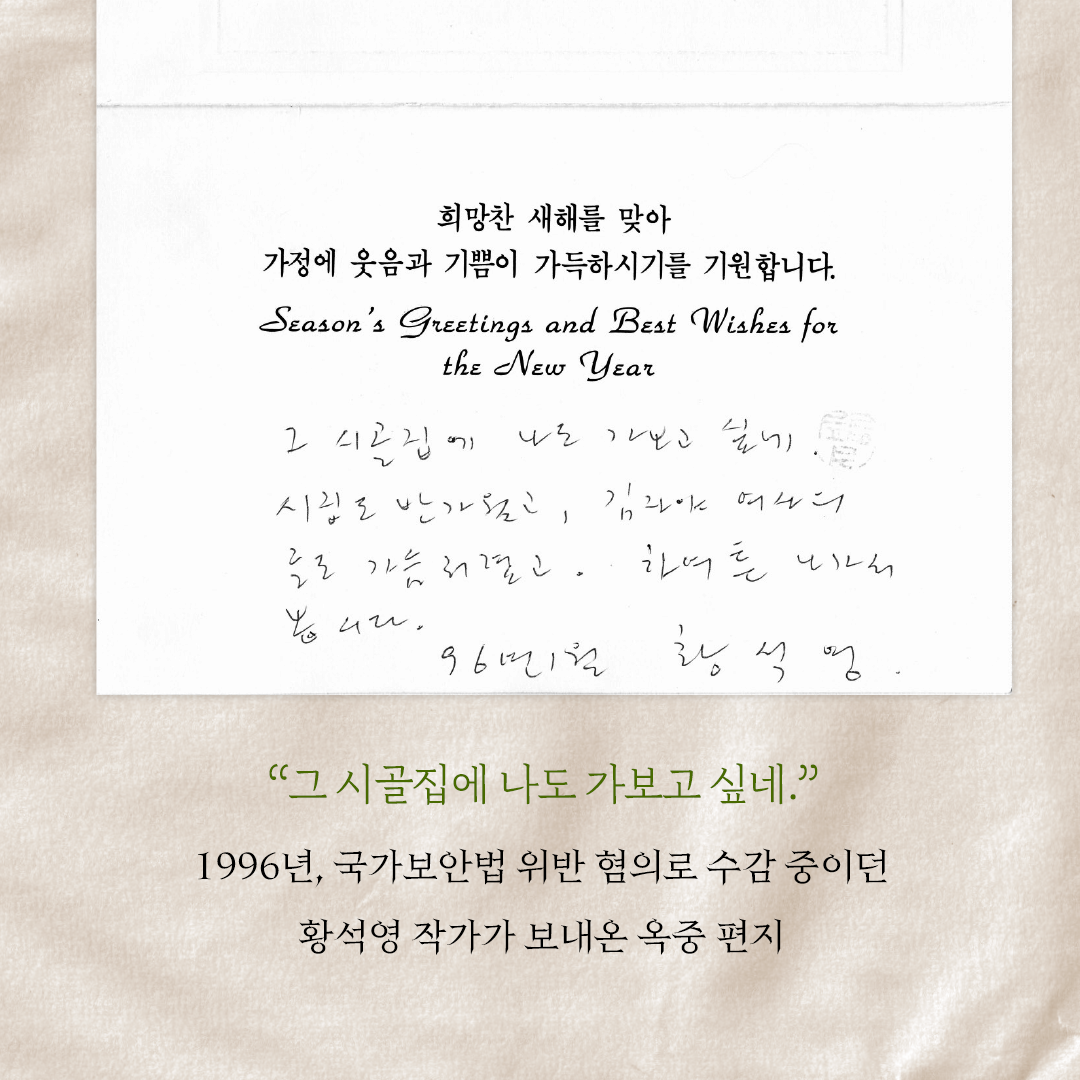 희망찬 새해를 맞아
가정에 웃음과 기쁨이 가득하시기를 기원합니다.
Season's Greetings and Best Wishes for
the New Year
그 시골집에 나도 가보고 싶네.
시집도 반가웠고, 김자야 여사의
글도 가슴 저렸고. 하여튼 나가서
봅시다.
96년 1월 황석영.
“그 시골집에 나도 가보고 싶네.”
1996년, 국가보안법 위반 혐의로 수감 중이던
황석영 작가가 보내온 옥중 편지